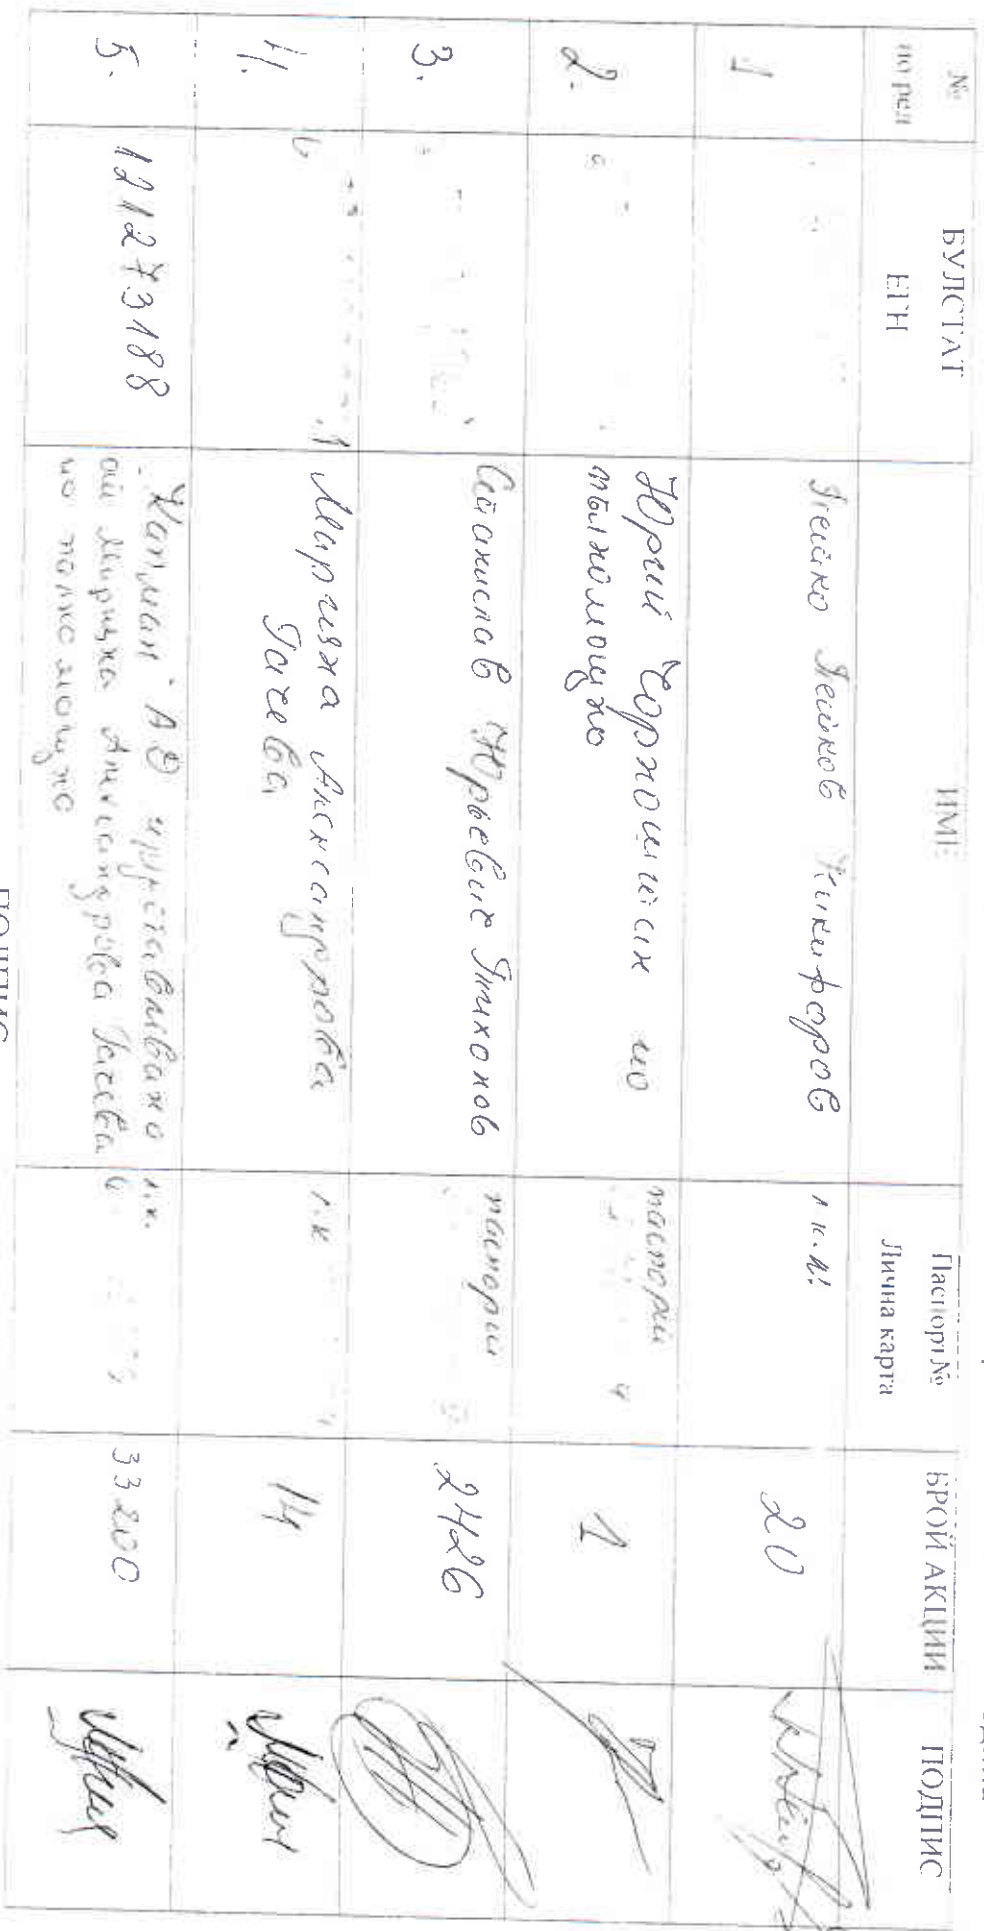 № по ред БУЛСТАТ ЕГН ИМЕ Паспорт № Лична карта БРОЙ АКЦИИ ПОДПИС
1 Пейко Пейков Никифоров л.к. №: 20
2. Юрий паспорт 1
пълномощно
3. Станислав Юрьевич Тихонов паспорт 2426
4. Марияна Александрова л.к 14
Гачева
5. 121273188 АД представлявано л.к. 33200
от Марияна Александрова Гачева
по пълномощно
ПОДПИС